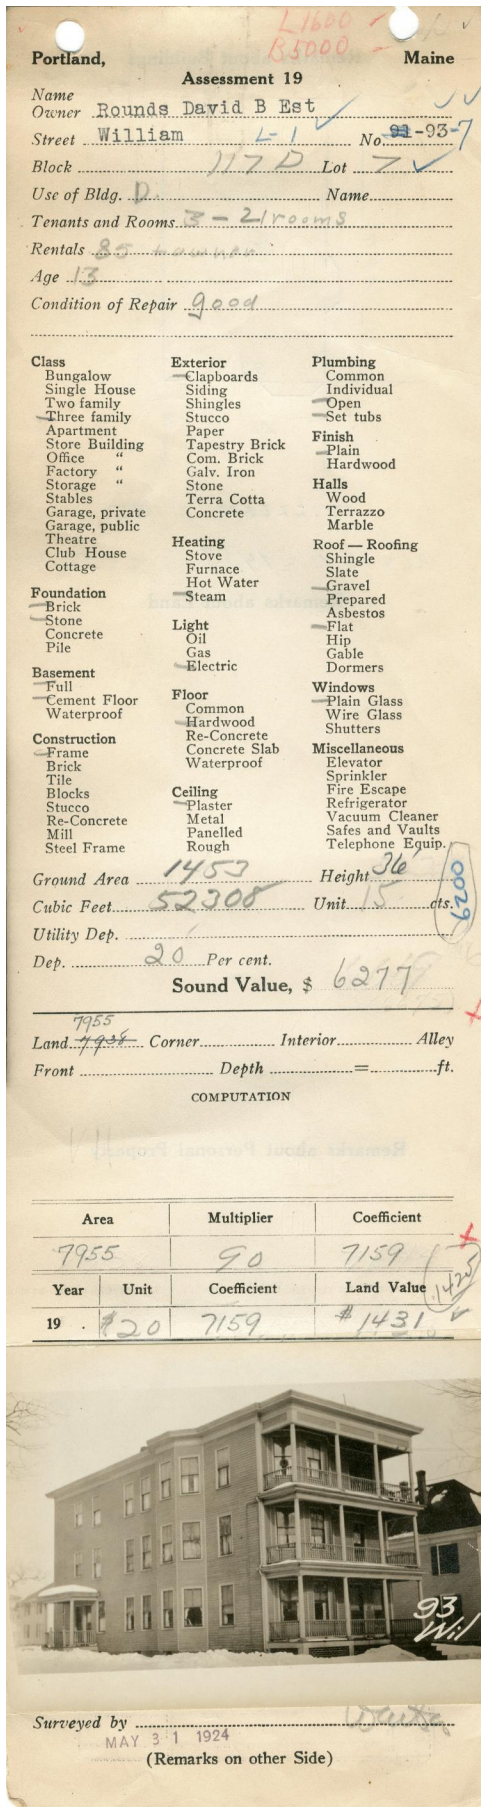 L1600
B5000
Portland, Maine
Assessment 19
Name
Owner Rounds David B Est
Street William L-1 No. 91-93-7
Block 117 D Lot 7
Use of Bldg. D. Name
Tenants and Rooms 3 - 21 rooms
Rentals 85 + owner
Age 13
Condition of Repair good
Class
Bungalow
Single House
Two family
Three family
Apartment
Store Building
Office "
Factory "
Storage "
Stables
Garage, private
Garage, public
Theatre
Club House
Cottage
Foundation
Brick
Stone
Concrete
Pile
Basement
Full
Cement Floor
Waterproof
Construction
Frame
Brick
Tile
Blocks
Stucco
Re-Concrete
Mill
Steel Frame
Exterior
Clapboards
Siding
Shingles
Stucco
Paper
Tapestry Brick
Com. Brick
Galv. Iron
Stone
Terra Cotta
Concrete
Heating
Stove
Furnace
Hot Water
Steam
Light
Oil
Gas
Electric
Floor
Common
Hardwood
Re-Concrete
Concrete Slab
Waterproof
Ceiling
Plaster
Metal
Panelled
Rough
Plumbing
Common
Individual
Open
Set tubs
Finish
Plain
Hardwood
Halls
Wood
Terrazzo
Marble
Roof — Roofing
Shingle
Slate
Gravel
Prepared
Asbestos
Flat
Hip
Gable
Dormers
Windows
Plain Glass
Wire Glass
Shutters
Miscellaneous
Elevator
Sprinkler
Fire Escape
Refrigerator
Vacuum Cleaner
Safes and Vaults
Telephone Equip.
Ground Area 1453 Height 36'
Cubic Feet 52308 Unit 15 cts.
6200
Utility Dep.
Dep. 20 Per cent.
Sound Value, $ 6277
7955
Land 7938 Corner Interior Alley
Front Depth = ft.
COMPUTATION
Area Multiplier Coefficient
7955 90 7159
Year Unit Coefficient Land Value
1425
19 . $20 7159 $1431
93
Wil
Surveyed by
MAY 31 1924
(Remarks on other Side)